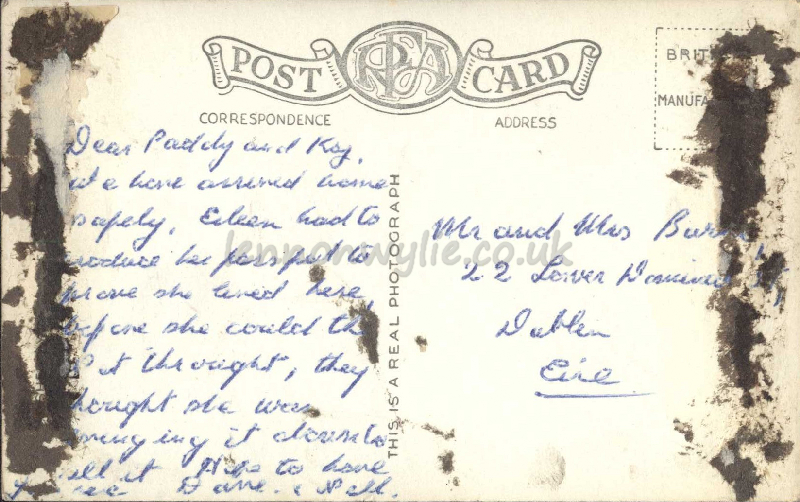 POST CARD
RPFA
CORRESPONDENCE
ADDRESS
BRIT
MANUFA
Dear Paddy and Kay,
We have arrived home
safely, Eileen had to
produce her passport to
prove she lived here,
before she could
it throught, they
thought she was
bringing it down to
sell it to have
Dave. & Nell.
THIS IS A REAL PHOTOGRAPH
Mr and Mrs
22 Lower Dominick St,
Dublin
Eire
lennonwylie.co.uk